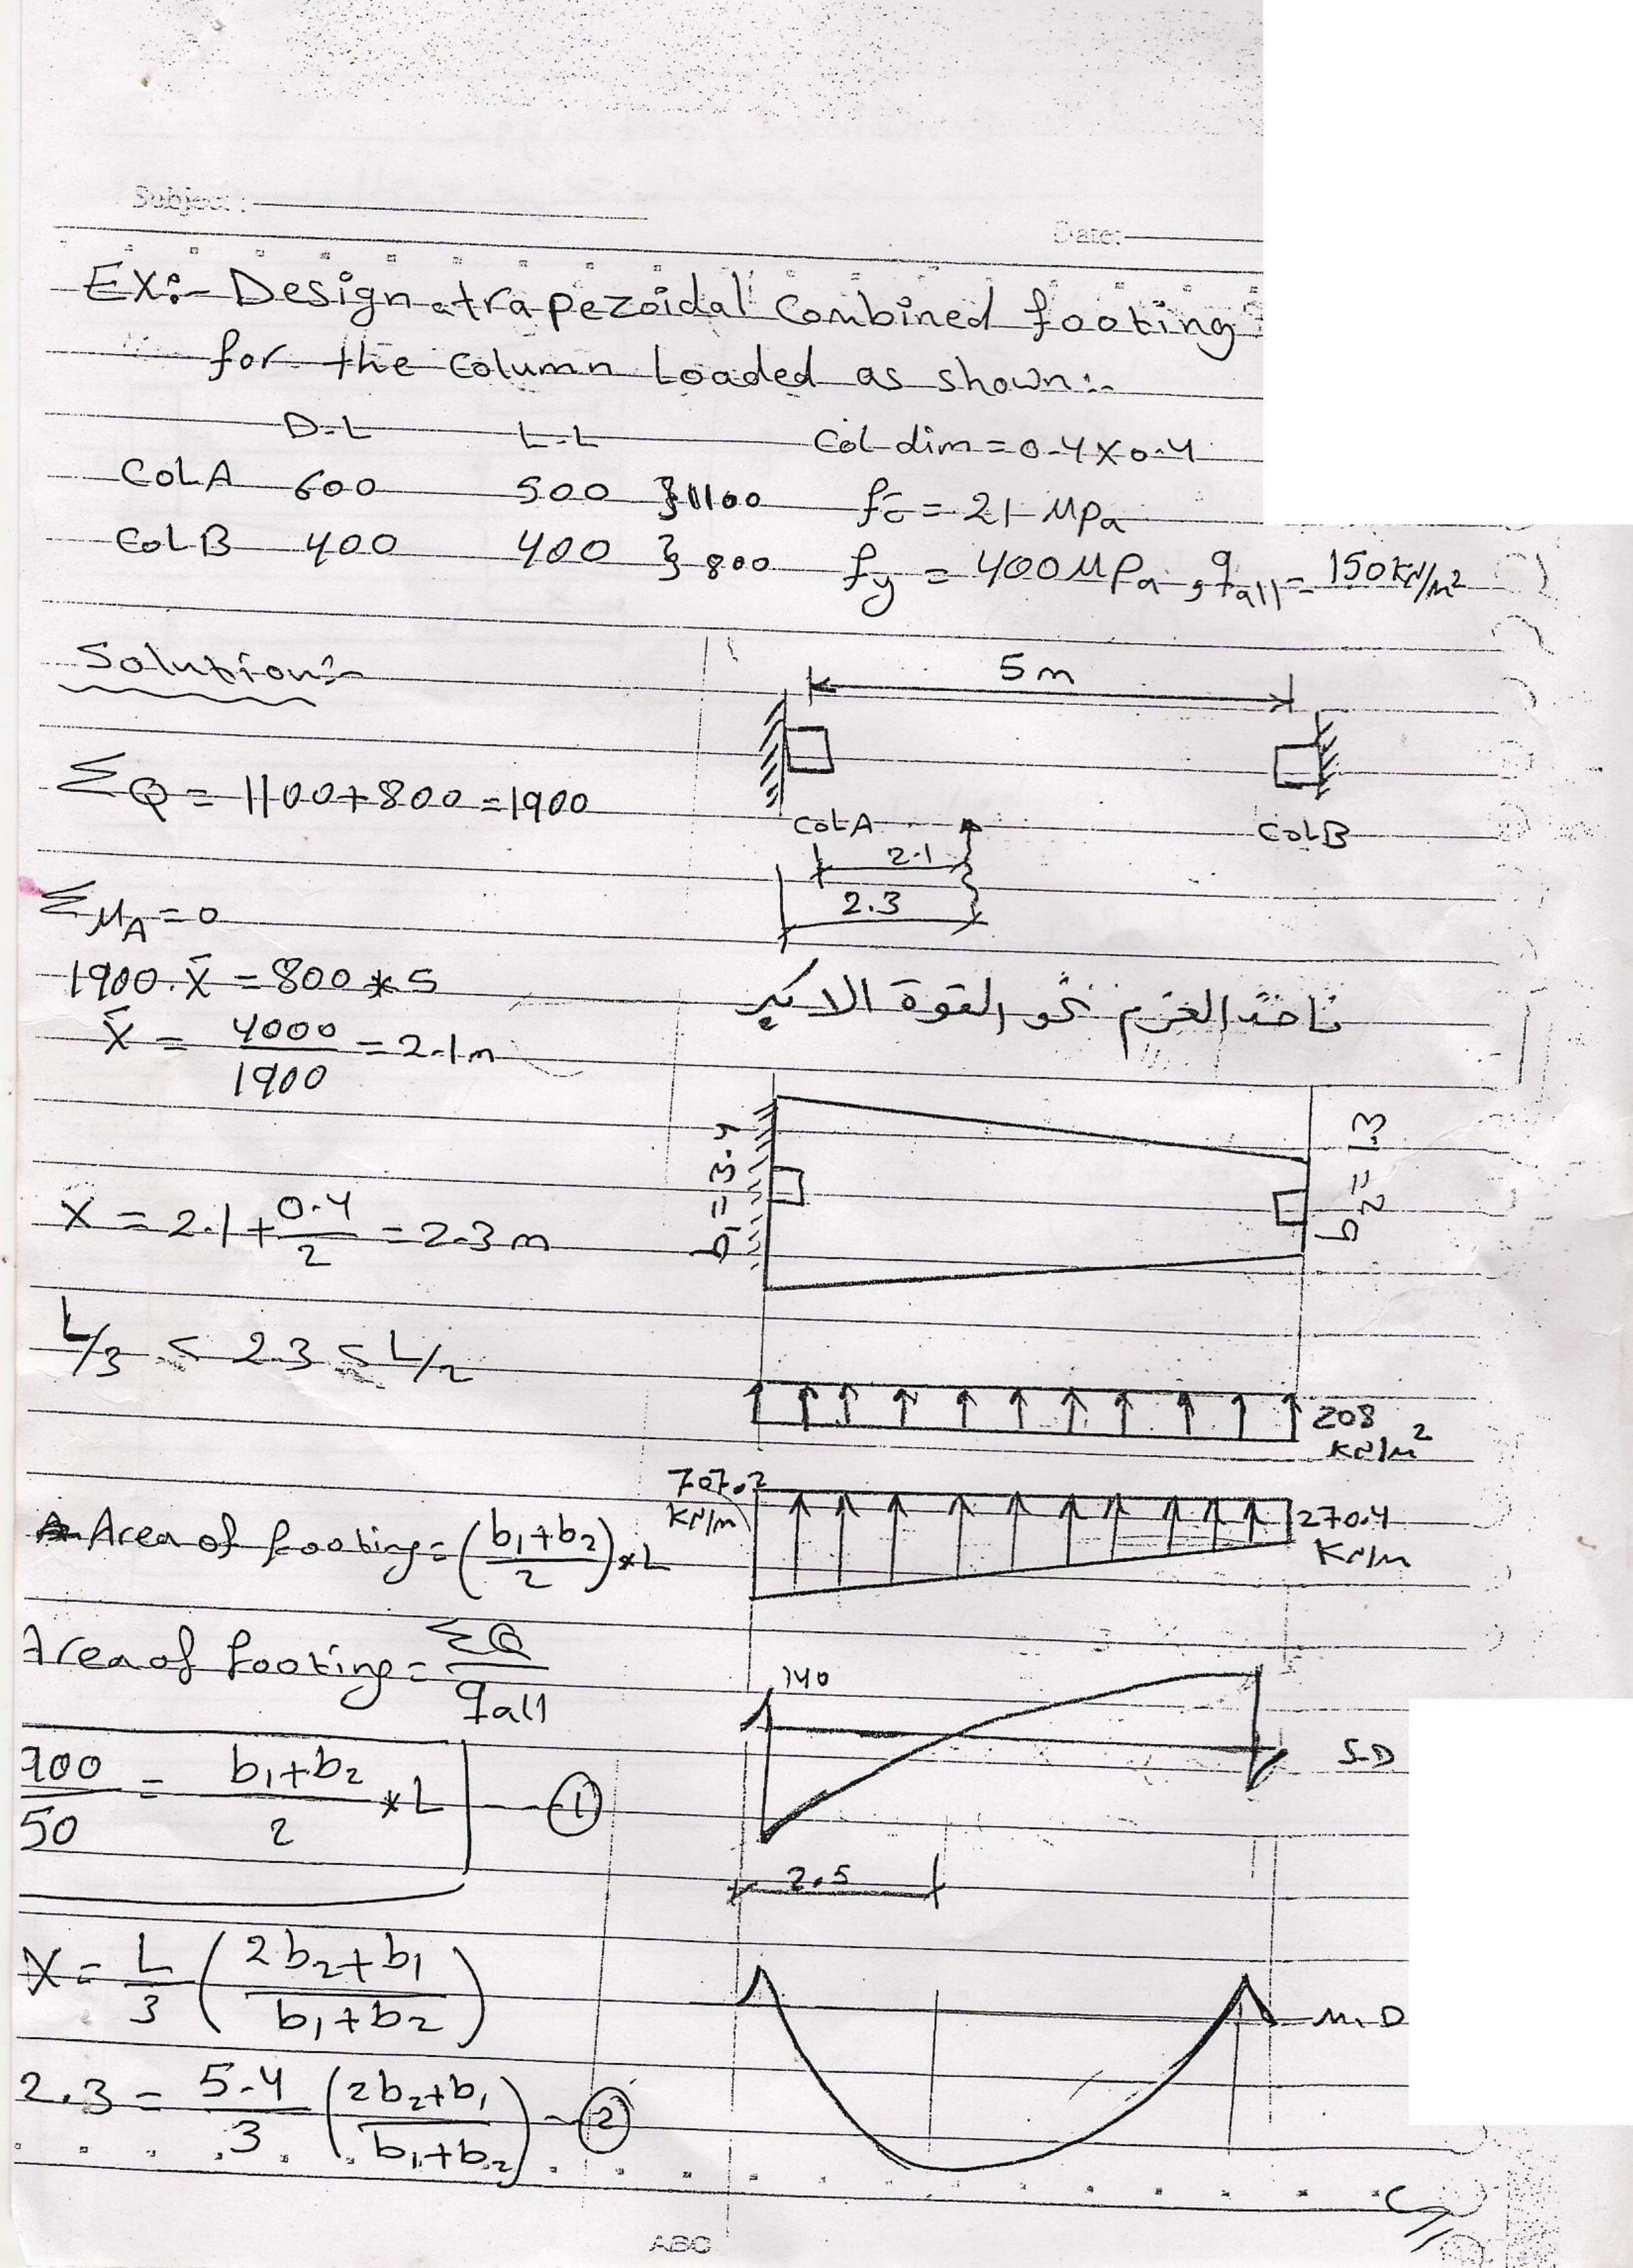 Subject:
Date:
EX:- Design a trapezoidal Combined footing
for the Column Loaded as shown:-
D.L L.L Col dim = 0.4 x 0.4
Col A 600 500 } 1100 fc̄ = 21 MPa
Col B 400 400 } 800 fy = 400 MPa , qall = 150 KN/m²
Solution:-
5m
ΣQ = 1100+800 = 1900
Col A
Col B
2.1
2.3
ΣMA = 0
1900.x̄ = 800 * 5
x̄ = 4000/1900 = 2.1m
ناخذ العزم نحو القوة الاكبر
X = 2.1 + 0.4/2 = 2.3 m
b1 = 3.4
b2 = 1.3
L/3 < 2.3 < L/2
208 KN/m²
707.2 KN/m
270.4 KN/m
Area of footing = (b1+b2/2) * L
Area of footing = ΣQ/qall
140
S.D
900/50 = b1+b2/2 * L --- ①
2.5
X = L/3 (2b2+b1/b1+b2)
M.D
2.3 = 5.4/3 (2b2+b1/b1+b2) -- ②
ABC